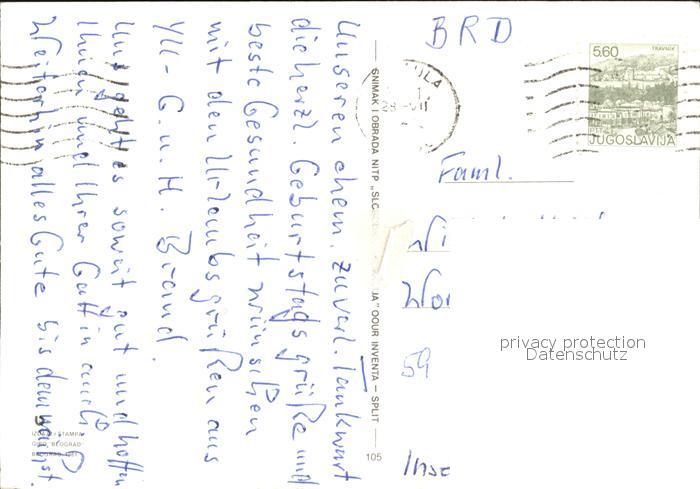 Unseren ehem. zuverl. Tankwart
die herzl. Geburtstagsgrüße und
beste Gesundheit wünschen
mit den Urlaubsgrüßen aus
YU - G. u. H. Brand.
Uns geht es soweit gut und hoffen
Ihnen und Ihrer Gattin auch
Weiterhin alles Gute bis demnächst.
SNIMAK I OBRADA NITP „SLO
IJA” OOUR INVENTA – SPLIT
105
BEOGRAD
BRD
5.60
TRAVNIK
PTT
JUGOSLAVIJA
28.-VII
Faml.
Wi
Wor
59
privacy protection
Datenschutz